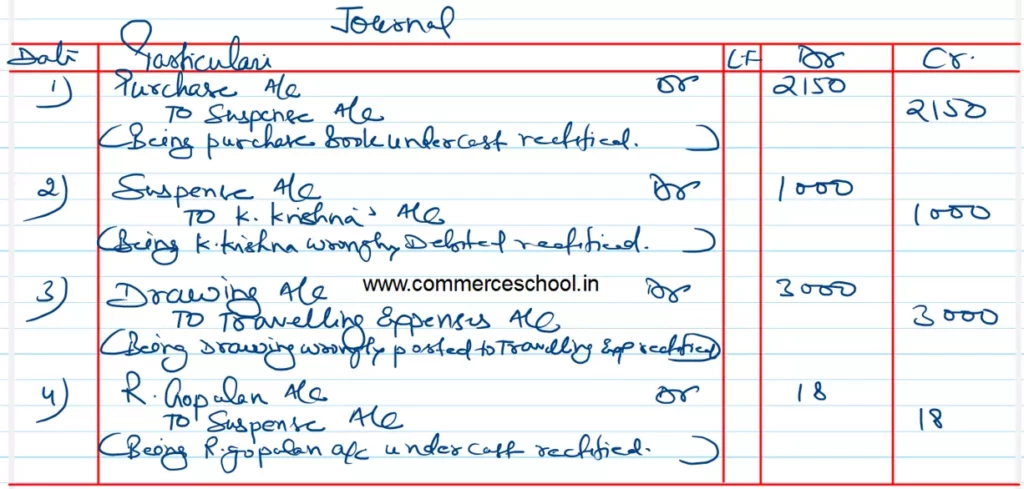 Journal
Date Particulars LF Dr Cr.
1) Purchase A/c Dr 2150
To Suspense A/c 2150
(Being purchase book undercast rectified. )
2) Suspense A/c Dr 1000
To K. Krishna's A/c 1000
(Being K. Krishna wrongly Debited rectified. )
3) Drawing A/c www.commerceschool.in Dr 3000
To Travelling Expenses A/c 3000
(Being Drawing wrongly posted to Travelling Exp rectified)
4) R. Gopalan A/c Dr 18
To Suspense A/c 18
(Being R. gopalan a/c undercast rectified. )